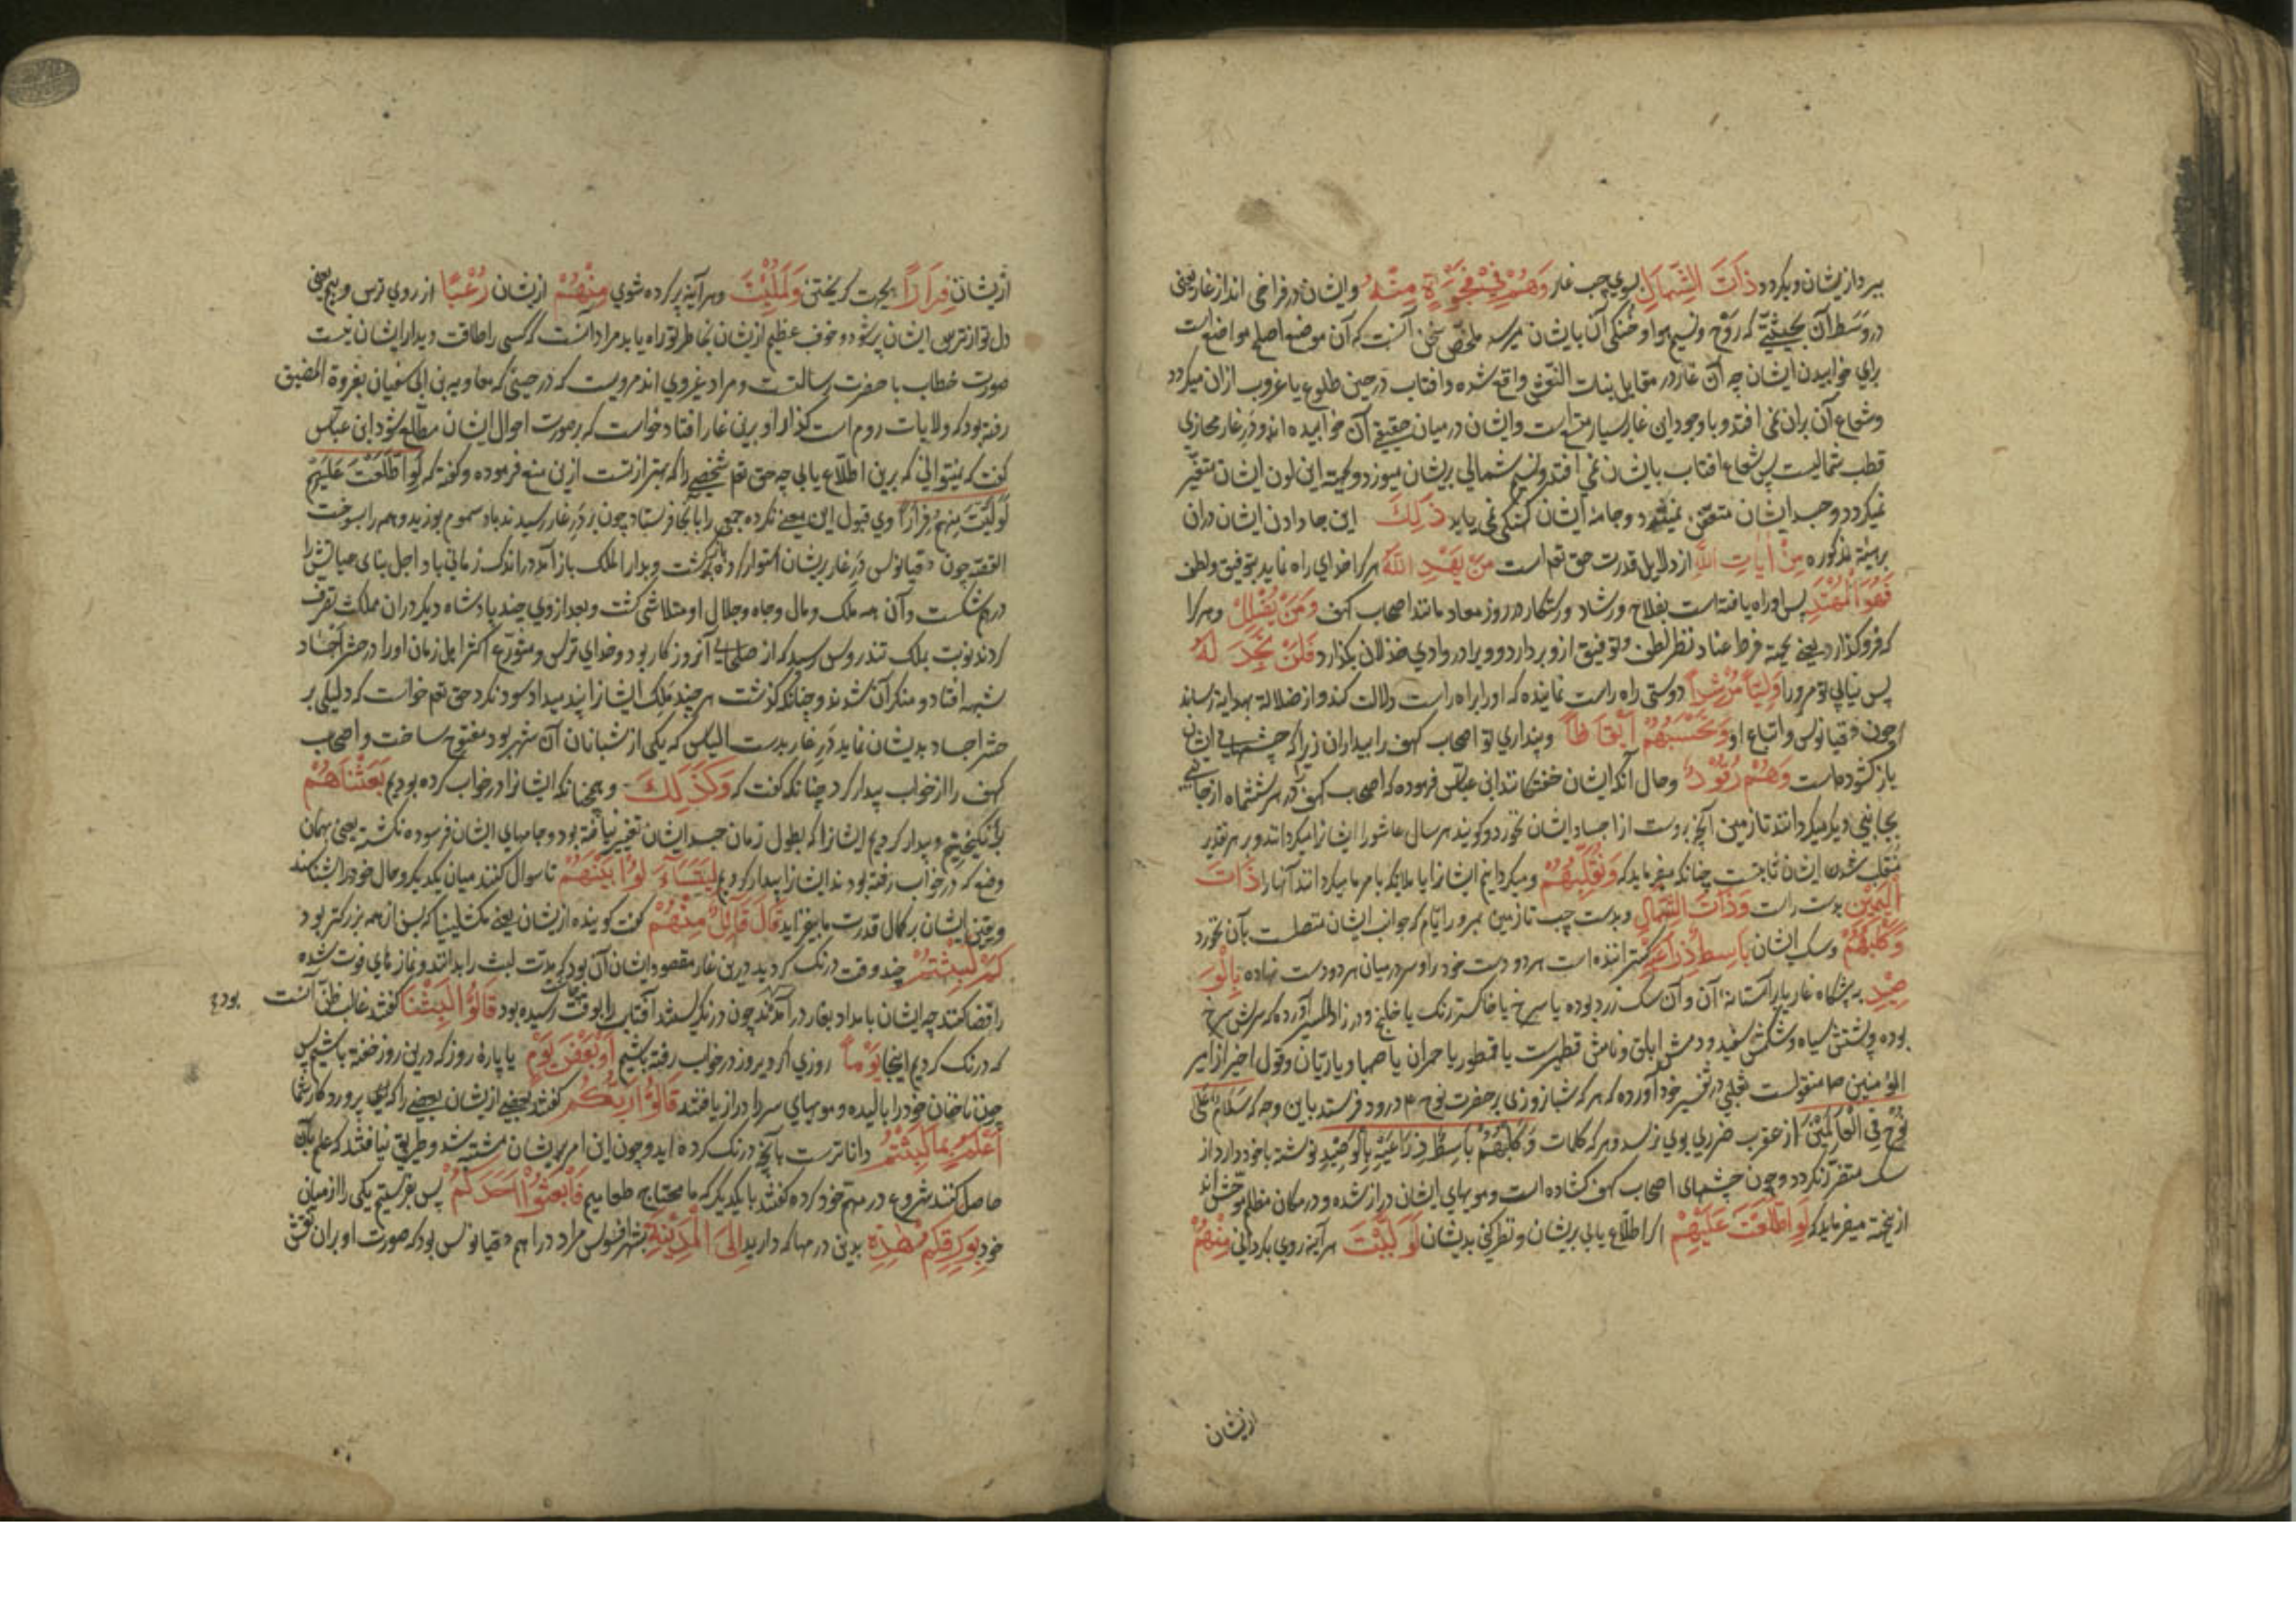 ببرد ازیشان و بگردد ذَاتَ الشِّمَالِ بسوی چپ غار وَهُمْ فِي فَجْوَةٍ مِنْهُ و ایشان در فراخی اند از غار یعنی
در وسط آن بحیثیتی که روح و نسیم هوا و خنکی آن بایشان میرسد ملخص سخن آنست که آن موضع اصلح مواضع است
برای خوابیدن ایشان چه آن غار در مقابل بنات النعش واقع شده و افتاب در حین طلوع یا غروب ازان میگردد
و شعاع آن بران نمی افتد و با وجود این غار بسیار متسع است و ایشان در میان حقیقی آن خوابیده اند و در غار محازی
قطب شمالیست پس شعاع افتاب بایشان نمی افتد و نسیم شمالی بریشان میوزد و بجهته این لون ایشان متغیر
نمیگردد و جسد ایشان متعفن نمیشود و جامهٔ ایشان کهنگی نمی یابد ذَلِكَ این جا دادن ایشان دران
بر هیئة مذکوره مِنْ آيَاتِ اللَّهِ از دلایل قدرت حق تعم است مَنْ يَهْدِ اللَّهُ هر کرا خدای راه نماید بتوفیق و لطف
فَهُوَ الْمُهْتَدِ پس او راه یافته است بفلاح و رشاد و رستکار در روز معاد مانند اصحاب کهف وَمَنْ يُضْلِلْ و هر کرا
که فرو گذارد یعنی بجهة فرط عناد نظر لطف و توفیق ازو بردارد و ویرا در وادی خذلان بگذارد فَلَنْ تَجِدَ لَهُ
پس نیابی تو مرورا وَلِيًّا مُرْشِدًا دوستی راه راست نماینده که او را براه راست دلالت کند و از ضلالة بهدایة رساند
چون دقیانوس و اتباع او وَتَحْسَبُهُمْ أَيْقَاظًا و پنداری تو اصحاب کهف را بیداران زیرا که چشمهای ایشان
باز گشوده است وَهُمْ رُقُودٌ و حال آنکه ایشان خفتگانند ابن عباس فرموده که اصحاب کهف در هر ششماه از جانبی
بجانبی دیگر میگردانند تا زمین آنچه بروست از اجساد ایشان نخورد و گویند هر سال عاشورا ایشانرا میگردانند و بر هر تقدیر
منقلب شدن ایشان ثابتست چنانکه میفرماید که وَنُقَلِّبُهُمْ و میگردانیم ایشانرا یا ملایکه بامر ما میگردانند آنها را ذَاتَ
الْيَمِينِ بدست راست وَذَاتَ الشِّمَالِ و بدست چپ تا زمین بمرور ایام که جوانب ایشان متصلست بآن نخورد
وَكَلْبُهُمْ و سگ ایشان بَاسِطٌ ذِرَاعَيْهِ گسترانیده است هر دو دست خود را و سر در میان هر دو دست نهاده بِالْوَ
صِيدِ به پیشگاه غار یا بر آستانهٔ آن و آن سگ زرد بوده یا سرخ یا خاکستر رنگ یا خلنج و در زاد المسیر آورده که سرش سرخ
بوده و پشتش سیاه و شکمش سفید و دمش ابلق و نامش قطمیرست یا قمطور یا حمران یا صهبا و یا رتیان و قول اخیر از امیر
المؤمنین منقولست ثعلبی در تفسیر خود آورده که هر که شبانروزی بر حضرت نوح ع م درود فرستد باین وجه که سَلَامٌ عَلَى
نُوحٍ فِي الْعَالَمِينَ از عقرب ضرری بوی نرسد و هر که کلمات وَكَلْبُهُمْ بَاسِطٌ ذِرَاعَيْهِ بِالْوَصِيدِ نوشته با خود دارد از
سگ متضرر نگردد و چون چشمهای اصحاب کهف گشاده است و مویهای ایشان دراز شده و در مکان مظلم موحش اند
ازینجهة میفرماید که لَوِ اطَّلَعْتَ عَلَيْهِمْ اگر اطلاع یابی بریشان و نظر کنی بدیشان لَوَلَّيْتَ هر آینه روی بگردانی مِنْهُمْ
ازیشان
ازیشان فِرَارًا بجهت گریختن وَلَمُلِئْتَ و هر آینه پر کرده شوی مِنْهُمْ ازیشان رُعْبًا از روی ترس و بیم یعنی
دل تو از ترس ایشان پر شود و خوف عظیم ازیشان بخاطر تو راه یابد مراد آنست که کسی را طاقت دیدار ایشان نیست
صورت خطاب با حضرت رسالتست و مراد غیر وی اند مرویست که در حینی که معاویه بن ابی سفیان بغزوة المضیق
رفته بود که ولایات روم است گذار او برین غار افتاد خواست که بر صورت احوال ایشان مطلع شود ابن عباس
گفت که نمیتوانی که برین اطلاع یابی چه حق تعم شخصی را که بهتر از تست ازین منع فرموده و گفته که لَوِ اطَّلَعْتَ عَلَيْهِمْ
لَوَلَّيْتَ مِنْهُمْ فِرَارًا وی قبول این معنی نکرده جمعی را بآنجا فرستاد چون بدر غار رسیدند باد سموم بوزید و همه را بسوخت
القصه چون دقیانوس در غار بریشان استوار کرده بازگشت و بدار الملک باز آمد در اندک زمانی باد اجل بنای حیاتش را
درهم شکست و آن همه ملک و مال و جاه و جلال او متلاشی گشت و بعد از وی چند پادشاه دیگر دران مملکت تصرف
کردند نوبت بملک تندروس رسید که از صلحای آنروزگار بود و خدای ترس و متورع اکثر اهل زمان او را در حشر اجساد
شبهه افتاد و منکر آن شدند و چنانکه گذشت هر چند ملک ایشانرا پند میداد سود نکرد حق تعم خواست که دلیلی بر
حشر اجساد بدیشان نماید در غار بدست الیاس که یکی از شبانان آن شهر بود مفتوح ساخت و اصحاب
کهف را از خواب بیدار کرد چنانکه گفت که وَكَذَلِكَ و همچنانکه ایشانرا در خواب کرده بودیم بَعَثْنَاهُمْ
برانگیختیم و بیدار کردیم ایشانرا که بطول زمان جسد ایشان تغییر نیافته بود و جامهای ایشان فرسوده نگشته یعنی بهمان
وضع که در خواب رفته بودند ایشانرا بیدار کردیم لِيَتَسَاءَلُوا بَيْنَهُمْ تا سوال کنند میان یکدیگر و حال خود را بشناسند
و یقین ایشان بر کمال قدرت ما بیفزاید قَالَ قَائِلٌ مِنْهُمْ گفت گوینده ازیشان یعنی مکشلینیا که بسن از همه بزرگتر بود
كَمْ لَبِثْتُمْ چند وقت درنگ کردید درین غار مقصود ایشان آن بود که مدت لبث را بدانند و نماز های فوت شده
را قضا کنند چه ایشان بامداد بغار درآمدند چون درنگریستند آفتاب بوقت رسیده بود قَالُوا لَبِثْنَا گفتند غالب ظن آنست بود
که درنگ کردیم اینجا يَوْمًا روزی اگر دیروز در خواب رفته باشیم أَوْ بَعْضَ يَوْمٍ یا پارهٔ روز که درین روز خفته باشیم پس
چون ناخنان خود را بالیده و مویهای سر را دراز یافتند قَالُوا رَبُّكُمْ گفتند بعضی ازیشان بعضی را که پروردکار شما
أَعْلَمُ بِمَا لَبِثْتُمْ داناترست بآنچه درنگ کرده اید و چون این امر بریشان مشتبه شد و طریق نیافتند که علم بآن
حاصل کنند شروع در مهم خود کرده گفتند با یکدیگر که ما محتاج طعامیم فَابْعَثُوا أَحَدَكُمْ پس بفرستیم یکی را از میان
خود بِوَرِقِكُمْ هَذِهِ بدین درمها که دارید إِلَى الْمَدِينَةِ بشهر افسوس مراد دراهم دقیانوس بود که صورت او بران نقش